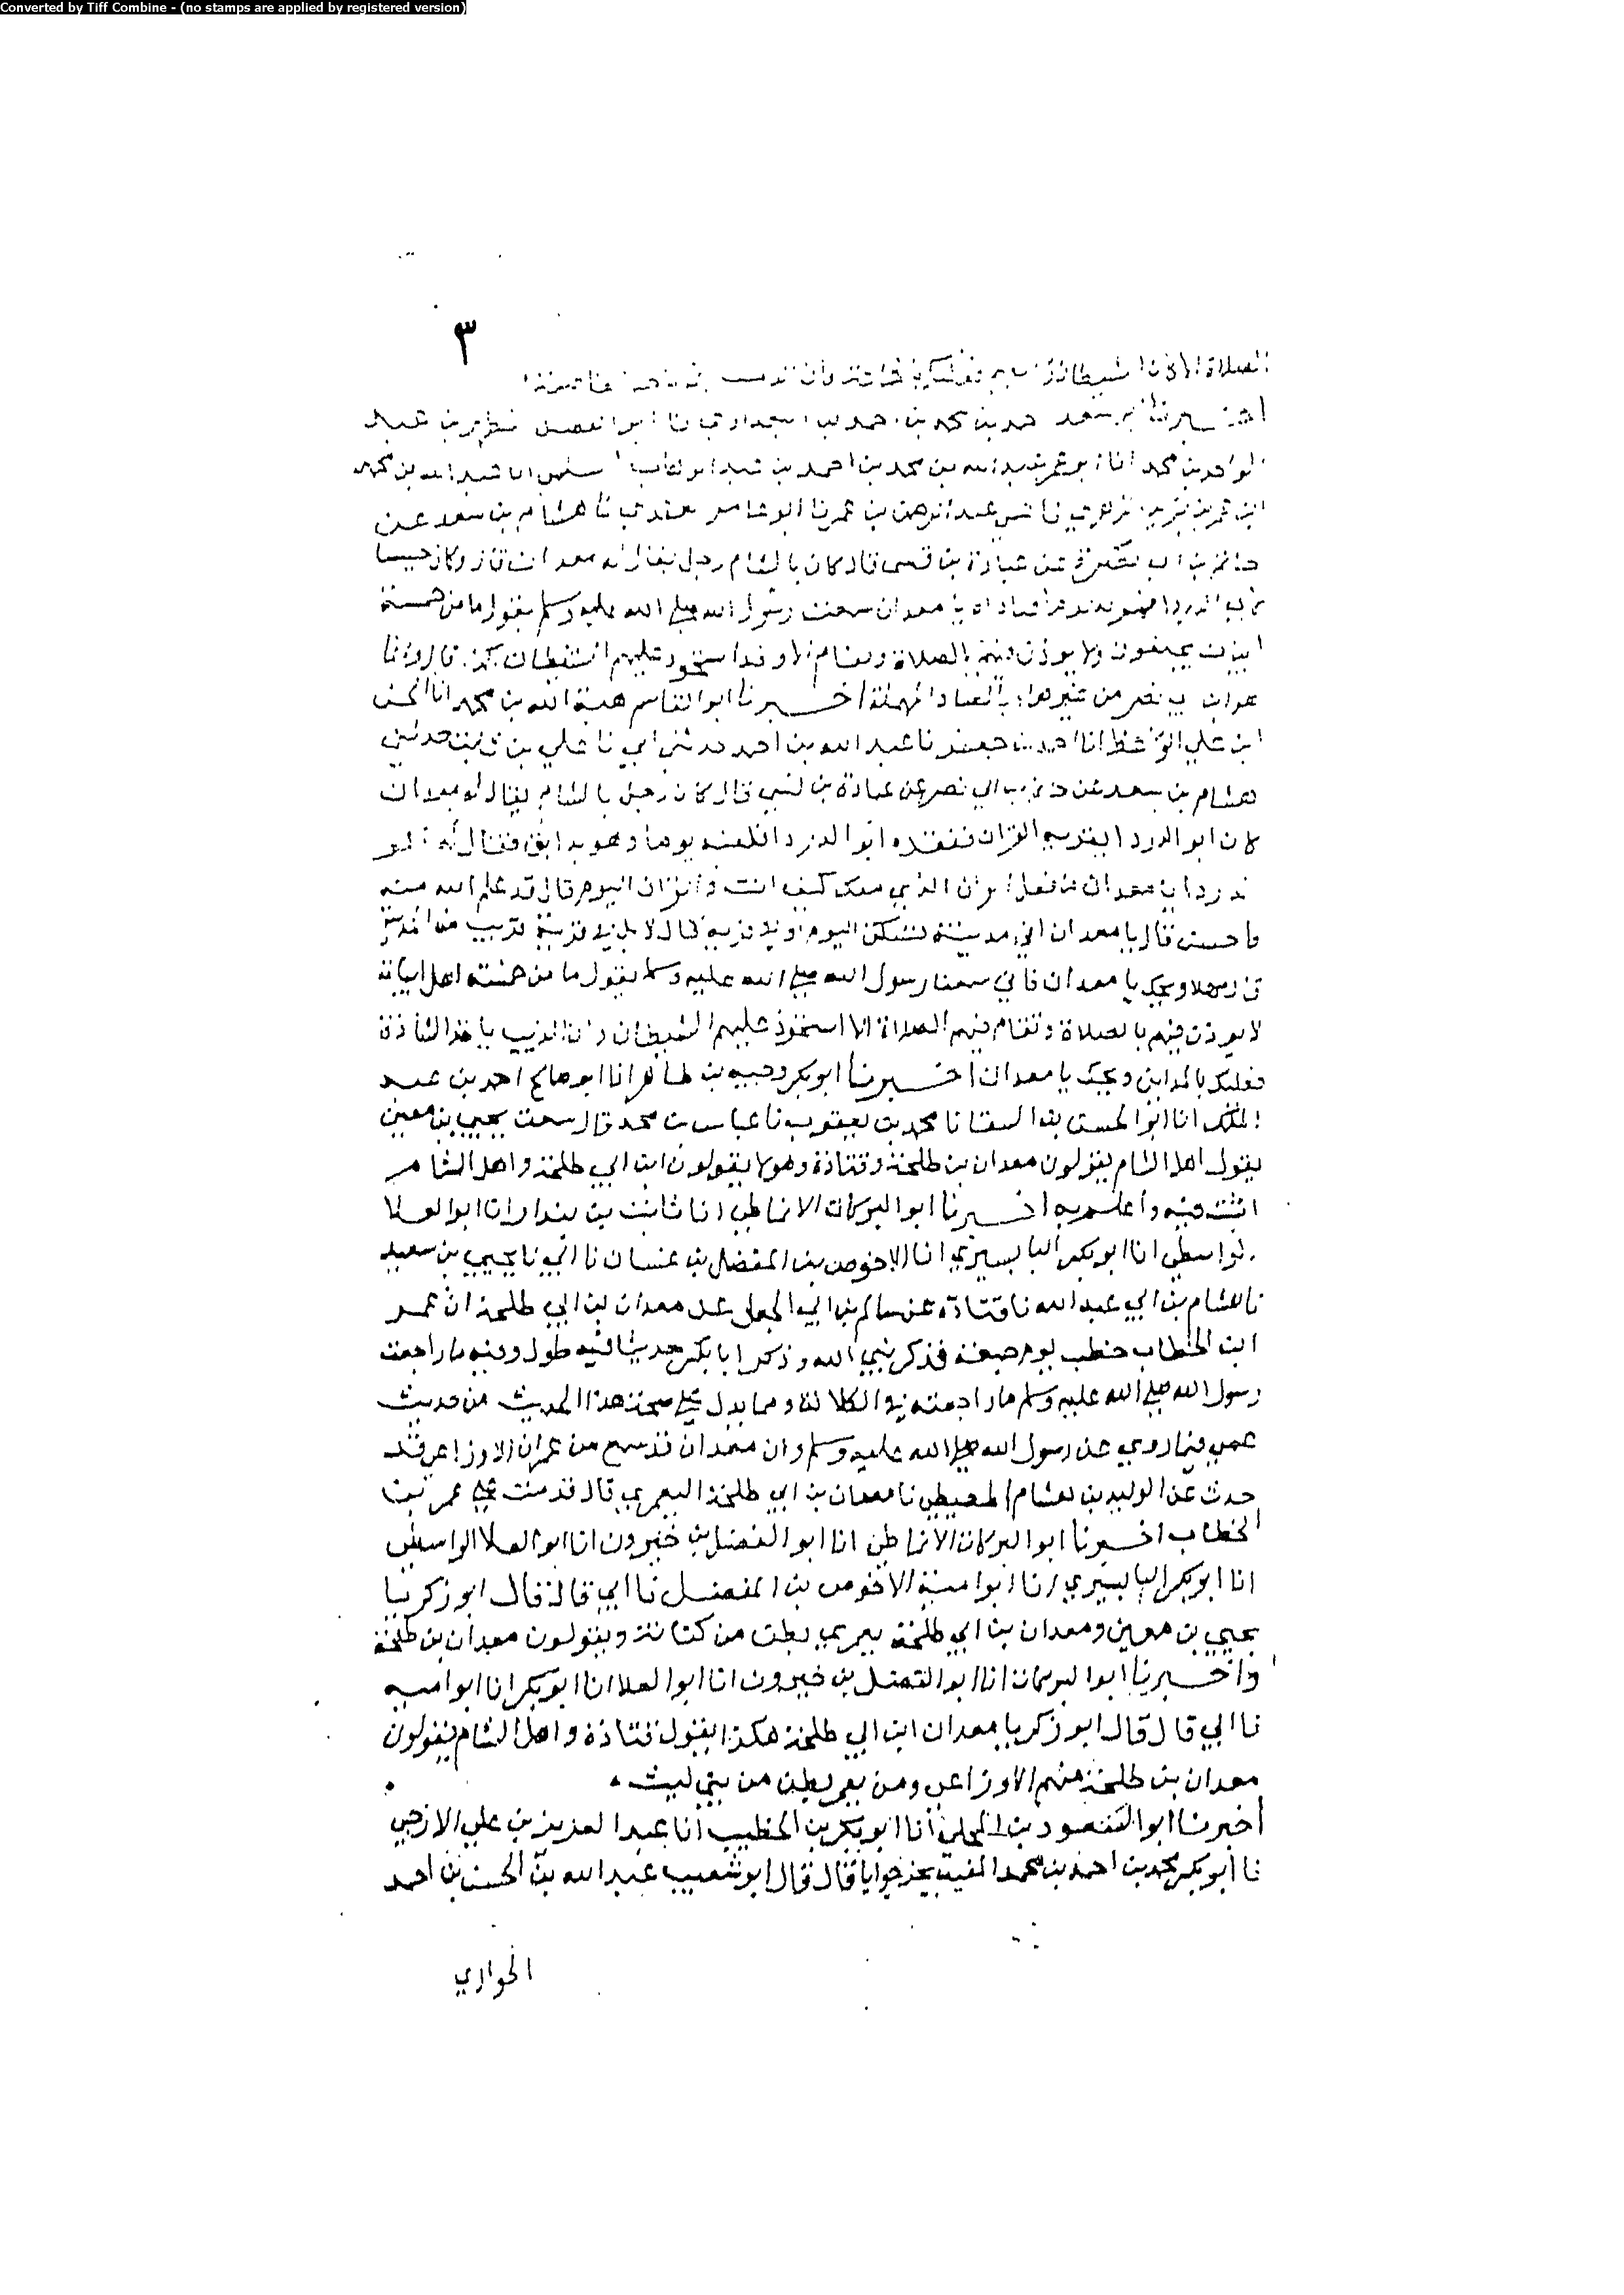 Converted by Tiff Combine - (no stamps are applied by registered version)
٣
الصلاة الا ان الشيطان
سعد احمد بن محمد بن احمد البغدادي نا ابو الفضل المطهر بن عبد
الواحد بن محمد انا ابو عمر عبد الله بن محمد بن احمد بن عبد الوهاب السلمي انا عبد الله بن محمد
ابن عمر بن يزيد الزهري نا عبد الرحمن بن عمر نا ابو عامر العقدي نا هشام بن سعد عن
حاتم بن ابي عن عبادة بن قال كان بالشام رجل يقال له معدان
ابو الدرداء يا معدان سمعت رسول الله صلى الله عليه وسلم يقول ما من خمسة
ابيات يجتمعون ولا يوذن فيهم بالصلاة وتقام الا وقد استحوذ عليهم الشيطان كذا قال وانما
هو ابن ابي نصر من غيرها بالصاد المهملة اخبرنا ابو القاسم هبة الله بن محمد انا الحسن
ابن علي الواعظ انا احمد بن جعفر نا عبد الله بن احمد حدثني ابي نا علي بن ثابت حدثني
هشام بن سعد عن حاتم بن ابي نصر عن عبادة بن نسي قال كان رجل بالشام يقال له معدان
كان ابو الدرداء يقريه القران ففقده ابو الدرداء فلقيه يوما وهو بدابق فقال له ابو
الدرداء يا معدان ما فعل القران الذي معك كيف انت والقران اليوم قال قد علم الله منه
فاحسن قال يا معدان افي مدينة تسكن اليوم او في قرية قال لا بل في قرية قريب من المدينة
قال مهلا ويحك يا معدان فاني سمعت رسول الله صلى الله عليه وسلم يقول ما من خمسة اهل ابيات
لا يوذن فيهم بالصلاة وتقام فيهم الصلاة الا استحوذ عليهم الشيطان وان الذيب ياخذ الشاذة
فعليك بالمداين ويحك يا معدان اخبرنا ابو بكر وجيه بن طاهر انا ابو صالح احمد بن عبد
الملك انا ابو الحسن بن السقا نا محمد بن يعقوب نا عباس بن محمد قال سمعت يحيى بن معين
يقول اهل الشام يقولون معدان بن طلحة وقتادة وهولا يقولون ابن ابي طلحة واهل الشام
اثبت فيه واعلم به اخبرنا ابو البركات الانماطي انا ثابت بن بندار انا ابو العلا
الواسطي انا ابو بكر البابسيري انا الاحوص بن المفضل بن غسان نا ابي نا يحيى بن سعيد
نا هشام بن ابي عبد الله نا قتادة عن سالم بن ابي الجعد عن معدان بن ابي طلحة ان عمر
ابن الخطاب خطب يوم جمعة فذكر نبي الله وذكر ابا بكر حديثا فيه طول وفيه ما راجعت
رسول الله صلى الله عليه وسلم ما راجعته في الكلالة ومما يدل على صحة هذا الحديث من حديث
عمر فيما روي عن رسول الله صلى الله عليه وسلم وان معدان قد سمع من عمر ان الاوزاعي قد
حدث عن الوليد بن هشام المعيطي نا معدان بن ابي طلحة اليعمري قال قدمت على عمر بن
الخطاب اخبرنا ابو البركات الانماطي انا ابو الفضل بن خيرون انا ابو العلا الواسطي
انا ابو بكر البابسيري انا ابو امية الاحوص بن المفضل نا ابي قال قال ابو زكريا
يحيى بن معين ومعدان بن ابي طلحة يعمري بطن من كنانة ويقولون معدان بن طلحة
واخبرنا ابو البركات انا ابو الفضل بن خيرون انا ابو العلا انا ابو بكر انا ابو امية
نا ابي قال قال ابو زكريا معدان ابن ابي طلحة هكذا يقول قتادة واهل الشام يقولون
معدان بن طلحة منهم الاوزاعي ومن يعمر بطن من بني ليث
أخبرنا ابو المنصور بن المحلي أنا ابو بكر بن الخطيب أنا عبد العزيز بن علي الازجي
نا أبو بكر محمد بن احمد بن محمد المفيد بجرجرايا قال قال ابو شعيب عبد الله بن الحسن بن احمد
الحراني